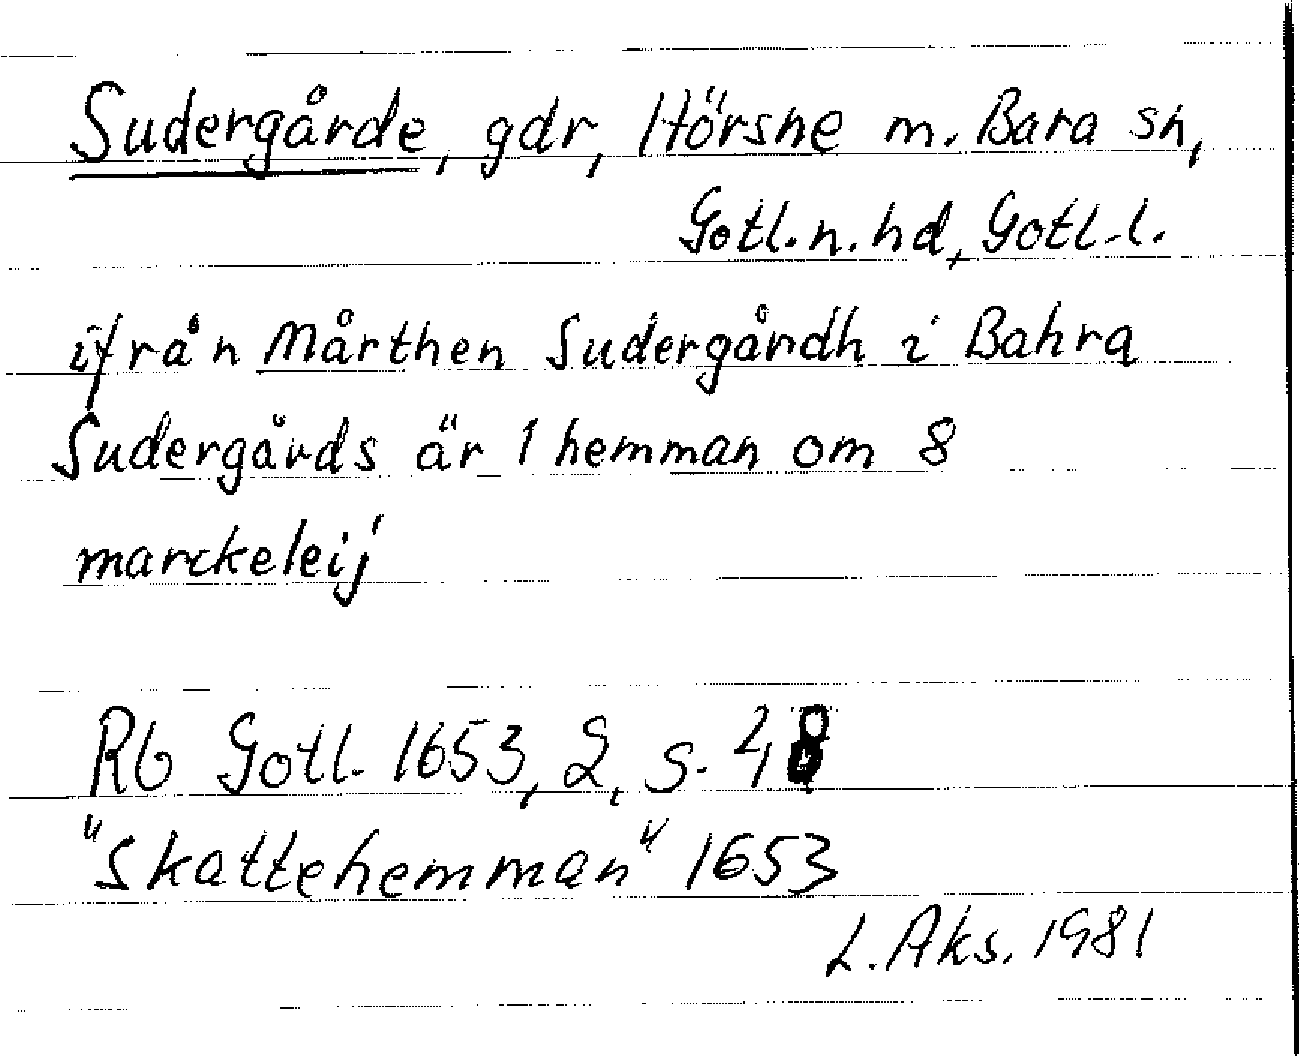 Sudergårde, gdr, Hörsne m. Bara sn,
Gotl.n.hd, Gotl.l.
ifrån Mårthen Sudergårdh i Bahra
Sudergårds är 1 hemman om 8
marckeleij
Rb Gotl. 1653, 2, s. 48
"Skattehemman" 1653
L. Aks. 1981